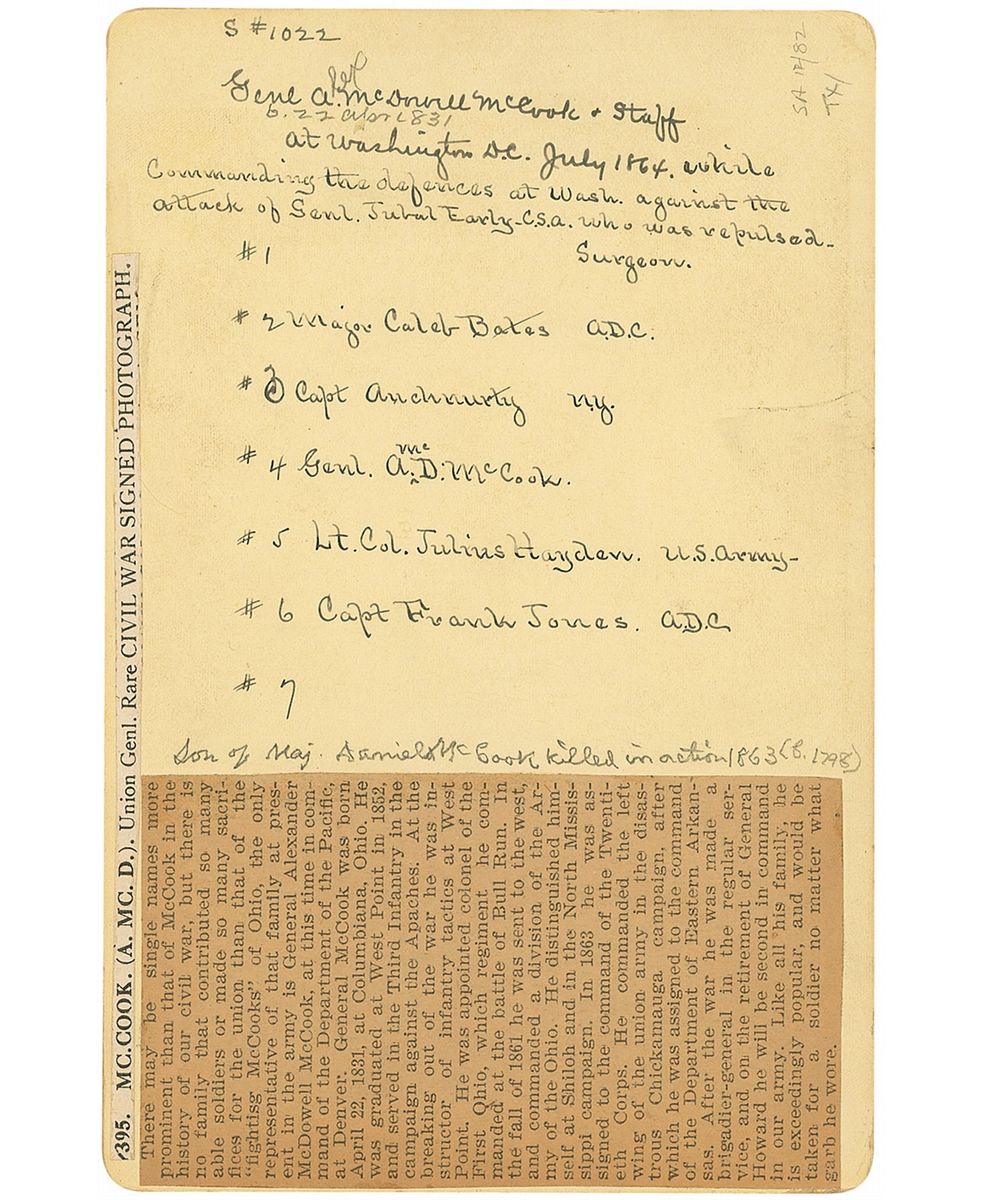 S #1022
SA 12/82
TX/
Genl A. McDowell McCook & Staff
b. 22 Apr 1831
at Washington D.C. July 1864. while
Commanding the defences at Wash. against the
attack of Genl. Jubal Early-C.S.A. who was repulsed-
#1 Surgeon.
#2 Major Caleb Bates A.D.C.
#3 Capt Anchnurty N.Y.
#4 Genl. A. McD. McCook.
#5 Lt. Col. Julius Hayden. U.S. Army-
#6 Capt Frank Jones. A.D.C
#7
Son of Maj. Daniel McCook killed in action 1863 (b. 1798)
395. MC.COOK. (A. MC. D.). Union Genl. Rare CIVIL WAR SIGNED PHOTOGRAPH.
There may be single names more
prominent than that of McCook in the
history of our civil war, but there is
no family that contributed so many
able soldiers or made so many sacri-
fices for the union than that of the
"fightisg McCooks" of Ohio, the only
representative of that family at pres-
ent in the army is General Alexander
McDowell McCook, at this time in com-
mand of the Department of the Pacific,
at Denver. General McCook was born
April 22, 1831, at Columbiana, Ohio. He
was graduated at West Point in 1852,
and served in the Third Infantry in the
campaign against the Apaches. At the
breaking out of the war he was in-
structor of infantry tactics at West
Point. He was appointed colonel of the
First Ohio, which regiment he com-
manded at the battle of Bull Run. In
the fall of 1861 he was sent to the west,
and commanded a division of the Ar-
my of the Ohio. He distinguished him-
self at Shiloh and in the North Missis-
sippi campaign. In 1863 he was as-
signed to the command of the Twenti-
eth Corps. He commanded the left
wing of the union army in the disas-
trous Chickamauga campaign, after
which he was assigned to the command
of the Department of Eastern Arkan-
sas. After the war he was made a
brigadier-general in the regular ser-
vice, and on the retirement of General
Howard he will be second in command
in our army. Like all his family, he
is exceedingly popular, and would be
taken for a soldier no matter what
garb he wore.